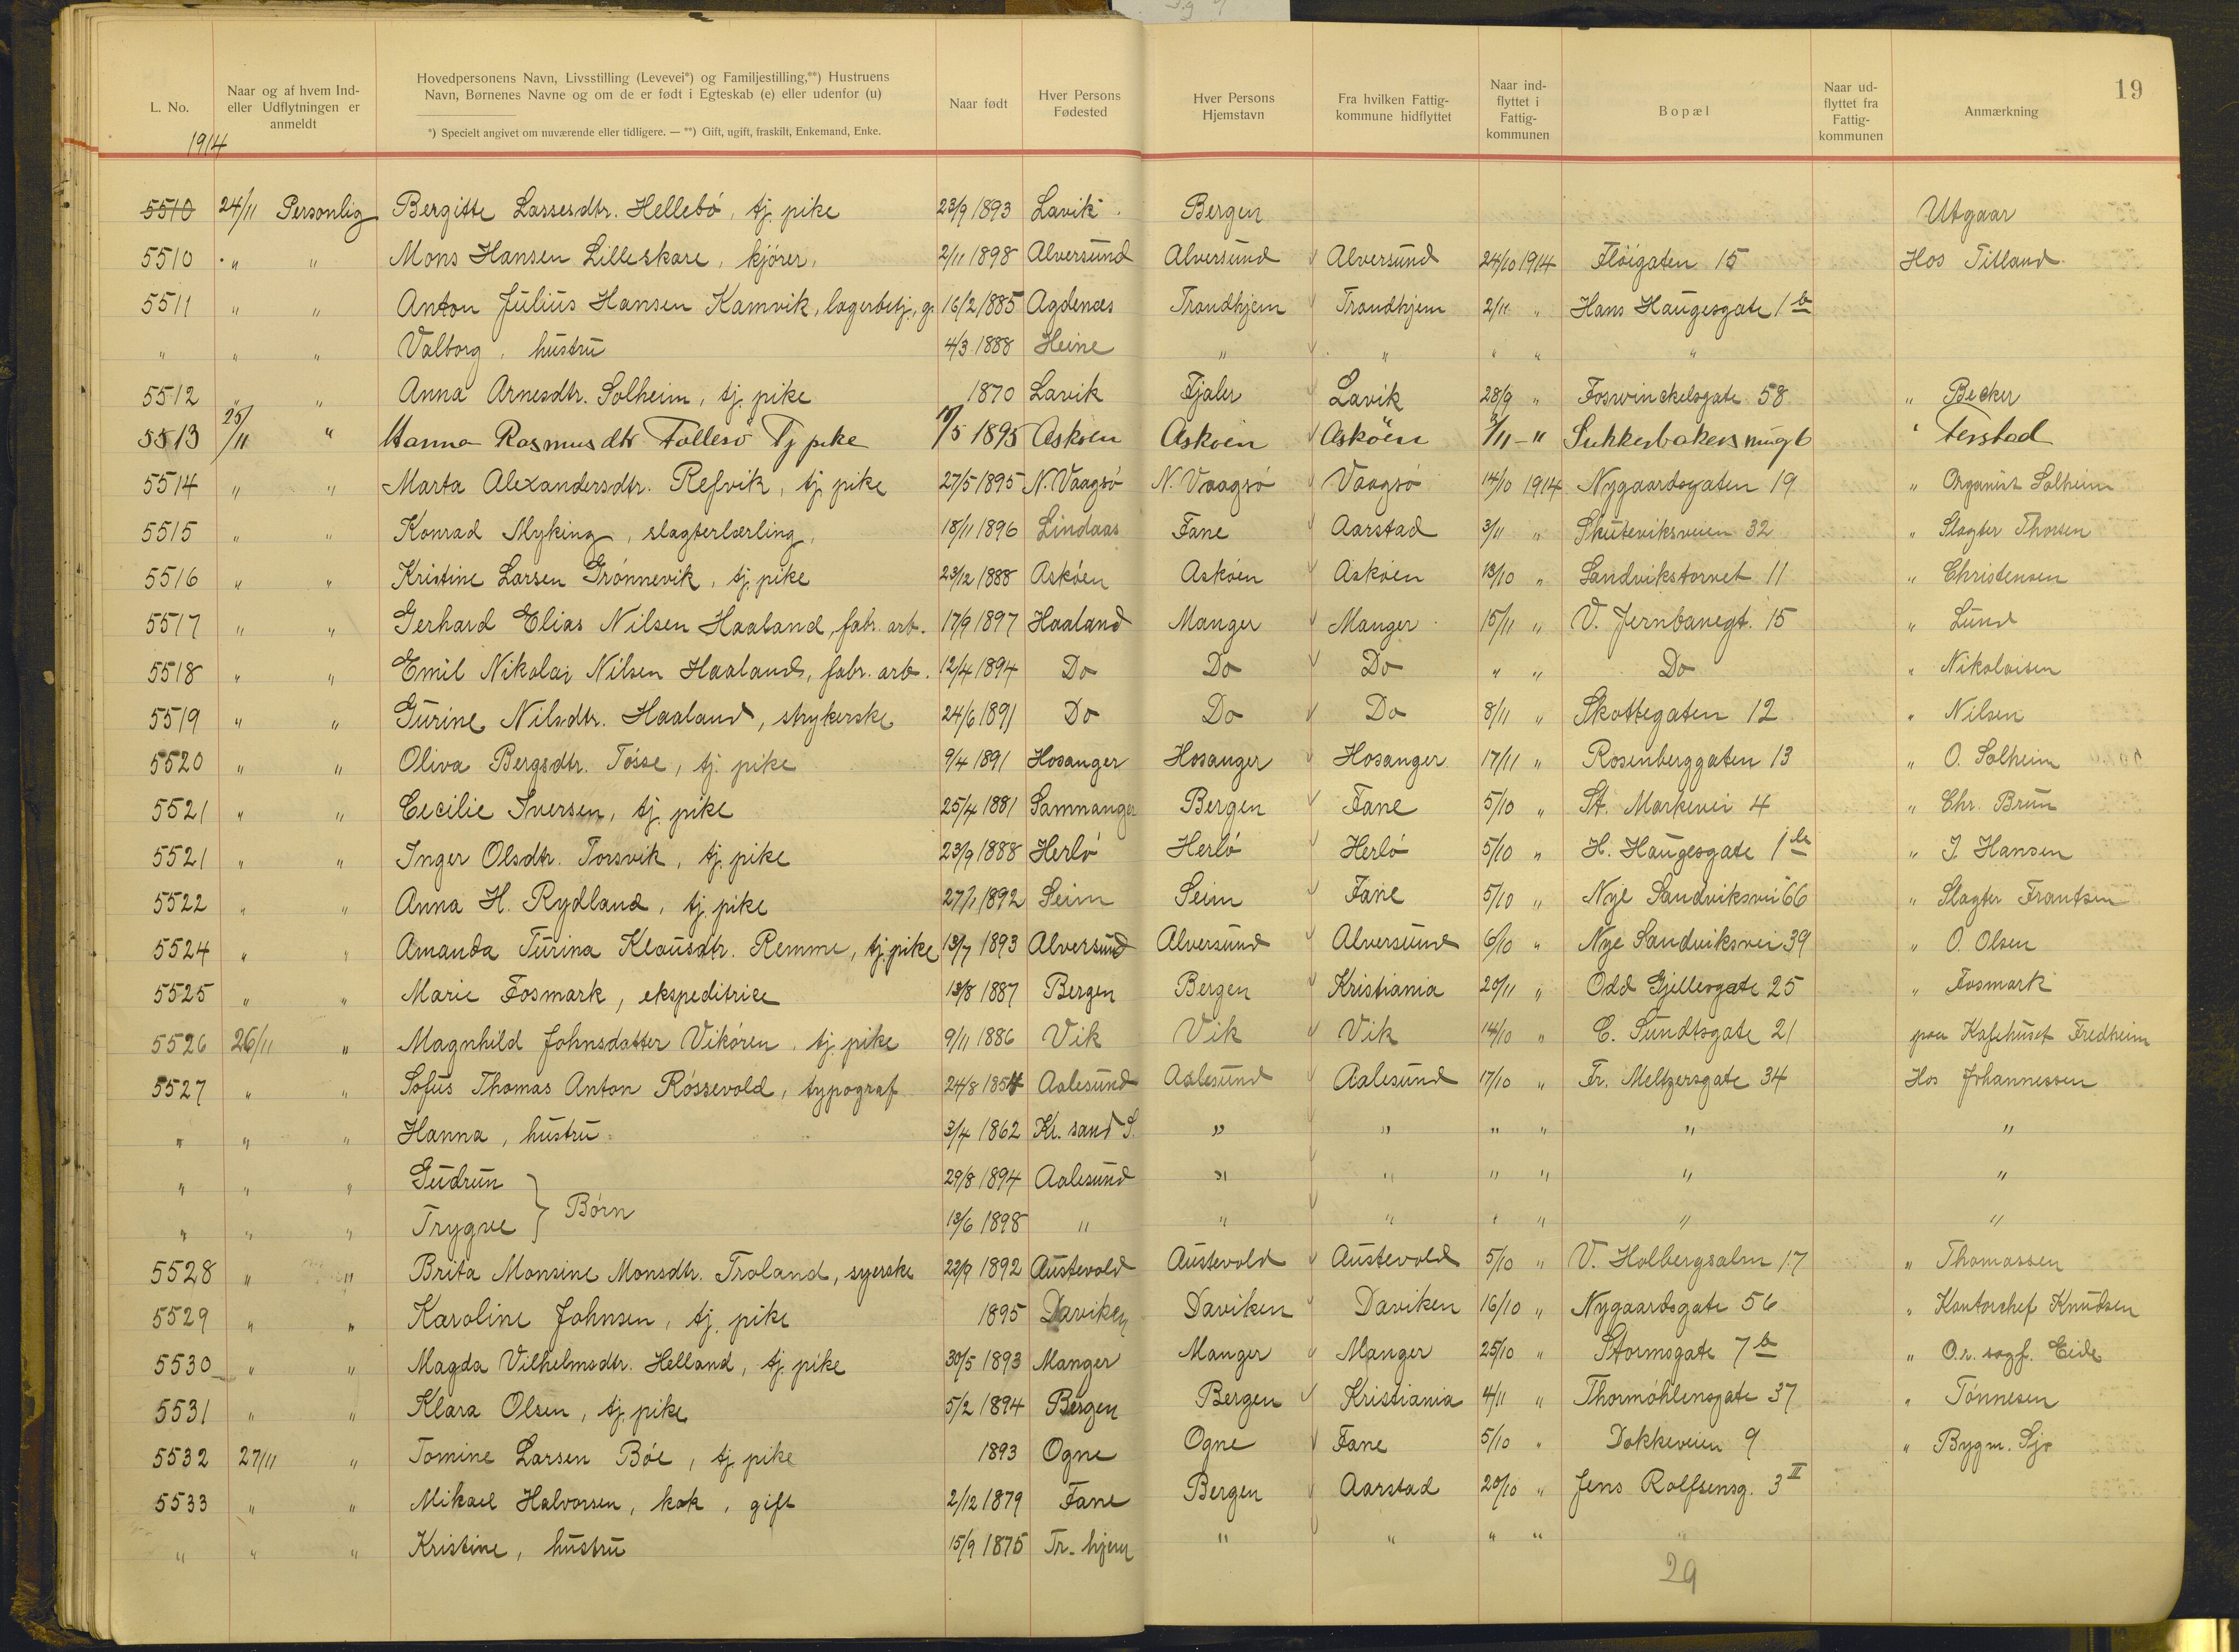 19
L. No. | Naar og af hvem Ind- eller Udflytningen er anmeldt | Hovedpersonens Navn, Livsstilling (Levevei*) og Familjestilling,**) Hustruens Navn, Børnenes Navne og om de er født i Egteskab (e) eller udenfor (u) | Naar født | Hver Persons Fødested | Hver Persons Hjemstavn | Fra hvilken Fattig- kommune hidflyttet | Naar ind- flyttet i Fattig- kommunen | Bopæl | Naar ud- flyttet fra Fattig- kommunen | Anmærkning
*) Specielt angivet om nuværende eller tidligere. — **) Gift, ugift, fraskilt, Enkemand, Enke.
1914
5510 24/11 Personlig Bergitte Lassesdtr. Hellebö, tj. pike 23/9 1893 Lavik Bergen Utgaar
5510 " " Mons Hansen Lilleskare, kjörer, 2/11 1898 Alversund Alversund Alversund 24/10 1914 Flöigaten 15 Hos Titland
5511 " " Anton Julius Hansen Kamvik, lagerbetj., g. 16/2 1885 Agdenæs Trondhjem Trondhjem 2/11 " Hans Haugesgate 1 b
" " " Valborg, hustru 4/3 1888 Heine " " " " "
5512 " " Anna Arnesdtr. Solheim, tj. pike 1870 Lavik Fjaler Lavik 28/9 " Foswinckelsgate 58 " Becker
5513 25/11 " Hanna Rasmusdtr Follesö Tj pike /5 1895 Asköen Asköen Asköen 3/11 " Sukkerbakersmug 6 " Terstad
5514 " " Marta Alexandersdtr. Refvik, tj. pike 27/5 1895 N. Vaagsö N. Vaagsö Vaagsö 14/10 1914 Nygaardsgaten 19 " Organist Solheim
5515 " " Konrad Myking, slagterlærling, 18/11 1896 Lindaas Fane Aarstad 3/11 " Skuteviksveien 32 " Slagter Thorsen
5516 " " Kristine Larsen Grönnevik, tj. pike 23/12 1888 Asköen Asköen Asköen 13/10 " Sandvikstorvet 11 " Christensen
5517 " " Gerhard Elias Nilsen Haaland, fabr. arb. 17/9 1897 Haaland Manger Manger 15/11 " V. Jernbanegt. 15 " Lund
5518 " " Emil Nikolai Nilsen Haaland, fabr. arb. 12/4 1894 Do Do Do " " Do " Nikolaisen
5519 " " Gurine Nilsdtr. Haaland, strykerske 24/6 1891 Do Do Do 8/11 " Skottegaten 12 " Nilsen
5520 " " Oliva Bergsdtr. Tösse, tj. pike 9/4 1891 Hosanger Hosanger Hosanger 17/11 " Rosenberggaten 13 " O. Solheim
5521 " " Cecilie Iversen, tj. pike 25/4 1881 Samnanger Bergen Fane 5/10 " St. Markevei 4 " Chr. Brun
5521 " " Inger Olsdtr. Torsvik, tj. pike 23/9 1888 Herlö Herlö Herlö 5/10 " H. Haugesgate 1 " J. Hansen
5522 " " Anna H. Rydland, tj. pike 27/1 1892 Seim Seim Fane 5/10 " Nye Sandviksvei 66 " Slagter Frantsen
5524 " " Amanda Turina Klausdtr. Remme, tj. pike 13/7 1893 Alversund Alversund Alversund 6/10 " Nye Sandviksvei 39 " O. Olsen
5525 " " Marie Fosmark, ekspeditrice 13/8 1887 Bergen Bergen Kristiania 20/11 " Odd Gjellesgate 25 " Fosmark
5526 26/11 " Magnhild Johnsdatter Vikören, tj. pike 9/11 1886 Vik Vik Vik 14/10 " C. Sundtsgate 21 paa Kafehuset Fredheim
5527 " " Sofus Thomas Anton Rössevold, typograf 24/8 1854 Aalesund Aalesund Aalesund 17/10 " Fr. Meltzersgate 34 Hos Johannessen
" " " Hanna, hustru 3/4 1862 Kr. sand S. " " " " " "
" " " Gudrun } Börn 29/8 1894 Aalesund " " " " " "
" " " Trygve 13/6 1898 " " " " " " "
5528 " " Brita Monsine Monsdtr. Troland, syerske 22/9 1892 Austevold Austevold Austevold 5/10 " V. Holbergsalm 17 " Thomassen
5529 " " Karoline Johnsen, tj. pike 1895 Daviken Daviken Daviken 16/10 " Nygaardsgate 56 " Kontorchef Knudsen
5530 " " Magda Vilhelmsdtr. Helland, tj. pike 30/5 1893 Manger Manger Manger 25/10 " Stormsgate 7 b " O.r. sagf. Eide
5531 " " Klara Olsen, tj. pike 5/2 1894 Bergen Bergen Kristiania 4/11 " Thormöhlensgate 37 " Tönnesen
5532 27/11 " Tomine Larsen Böe, tj. pike 1893 Ogne Ogne Fane 5/10 " Dokkeveien 9 " Bygm.
5533 " " Mikael Halvorsen, kok, gift 2/12 1879 Fane Bergen Aarstad 20/10 " Jens Rolfsensg. 3 II
" " " Kristine, hustru 15/9 1875 Tr. hjem " " " " "
29